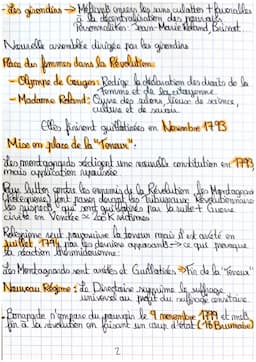 - Les girondins → Méfiants envers les sans culottes + favorables
à la décentralisation des pouvoirs
Personnalités : Jean-Marie Roland, Brissot
Nouvelle assemblée dirigée par les girondins
Place des femmes dans la Révolution
- Olympe de Gouges : Rédige la déclaration des droits de la
femme et de la citoyenne
- Madame Roland : Ouvre des salons, lieux de science,
culture et de savoir
Elles finirent guillotinées en Novembre 1793
Mise en place de la "Terreur".
Les montagnards rédigent une nouvelle constitution en 1793
mais application
Pour lutter contre les ennemis de la Révolution, les Montagnards
font passer devant les Tribunaux Révolutionnaires
les "suspects" qui sont guillotinés par la suite + Guerre
civile en Vendée = 200K victimes
Robespierre veut poursuivre la terreur mais il est arrêté en
juillet 1794 par les derniers opposants → ce qui provoque
la réaction thermidorienne.
Les Montagnards sont arrêtés et Guillotinés → Fin de la "Terreur"
Nouveau Régime : Le Directoire supprime le suffrage
universel au profit du suffrage censitaire.
- Bonaparte s'empare du pouvoir le 9 novembre 1799 et met
fin à la révolution en faisant un coup d'état (18 Brumaire)
2